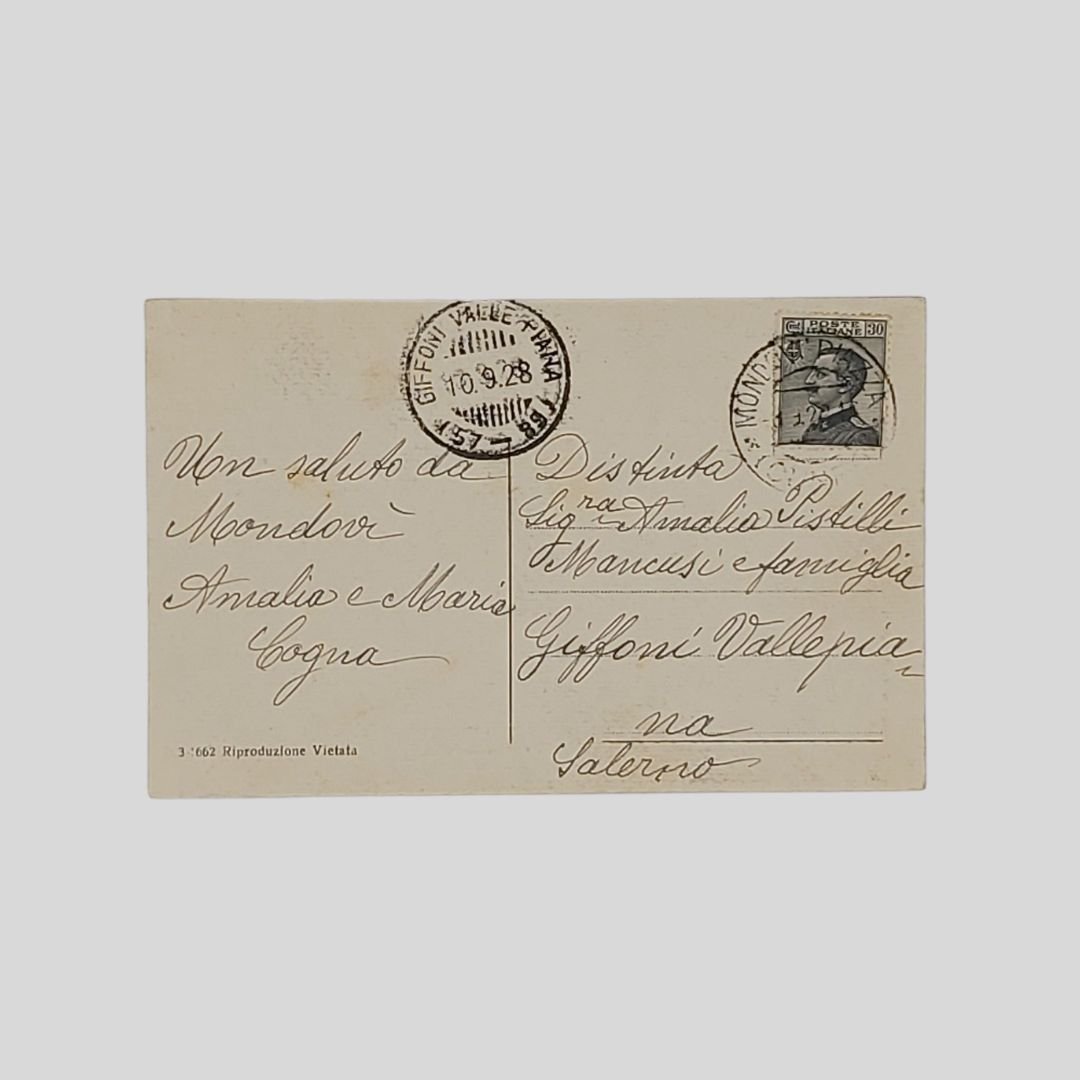 GIFFONI VALLE PIANA
10.9.28
POSTE
ITALIANE
30
Un saluto da
Mondovì
Amalia e Maria
Cogna
Distinta
Sig.ra Amalia Pistilli
Mancusi e famiglia
Giffoni Vallepia-
na
Salerno
Riproduzione Vietata